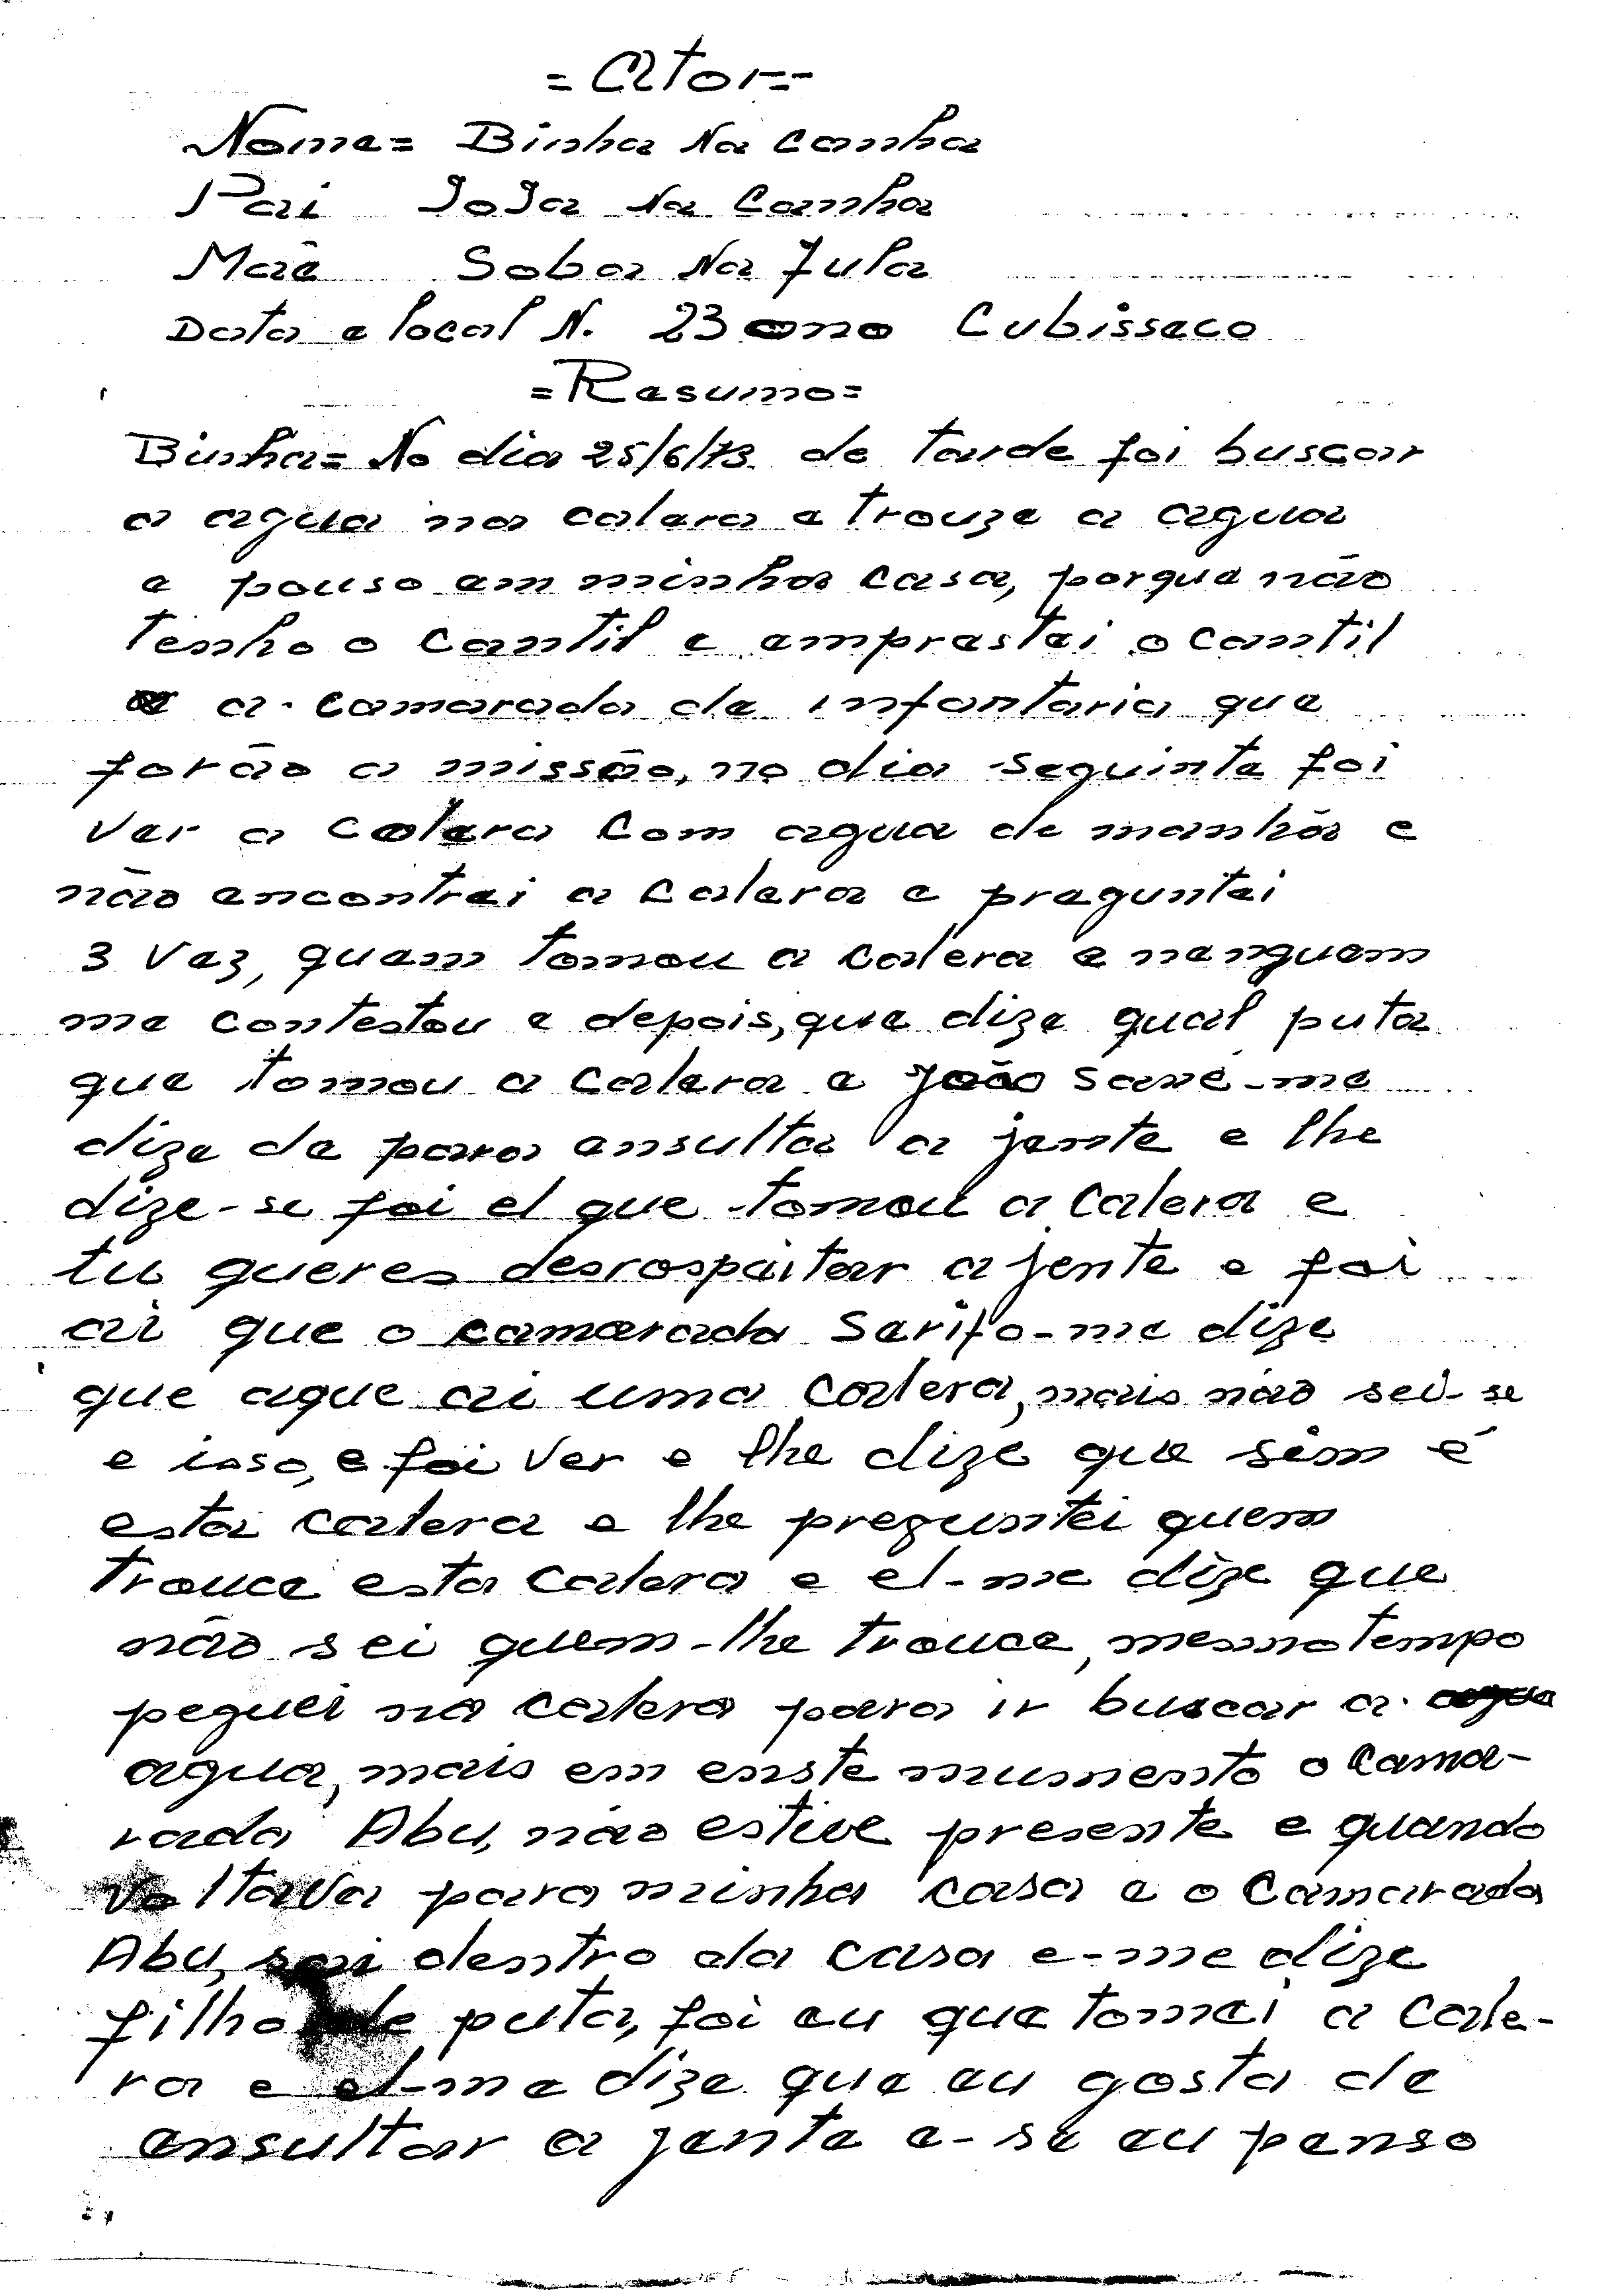 = Ator =
Nome = Binha Na Canha
Pai JoJa Na Canha
Maê Soba Na Fula
Data e local N. 23 ano Cubisseco
= Resumo =
Binha = No dia 25/6/73 de tarde foi buscar
a agua na calera e trouze a agua
e pouso em minha casa, porque não
tenho o cantil e emprestei o cantil
a camarada de infantaria que
forão a missão, no dia seguinte foi
ver a calera com agua de manhã e
não encontrei a calera e preguntei
3 vez, quem tomou a calera e nenguem
me contestou e depois, que dize qual puta
que tomou a calera e João Sané-me
dize de para ensulta a jente e lhe
dize-se foi el que tomou a calera e
tu queres desrospeitar a jente e foi
ai que o camarada Serifo-me dize
que aque ai uma calera, mais não sei-se
e isso, e foi ver e lhe dize que sim é
esta calera e lhe preguntei quem
trouce esta calera e el-me dize que
não sei quem-lhe trouce, mesmo tempo
peguei na calera para ir buscar a
agua, mais em enste mumento o cama-
rada Abu, não estive presente e quando
voltava para minha casa e o camarada
Abu, sai dentro da casa e-me dize
filho de puta, foi eu que tomei a cale-
ra e el-me dize que eu gosta de
ensultar a jente e-se eu penso